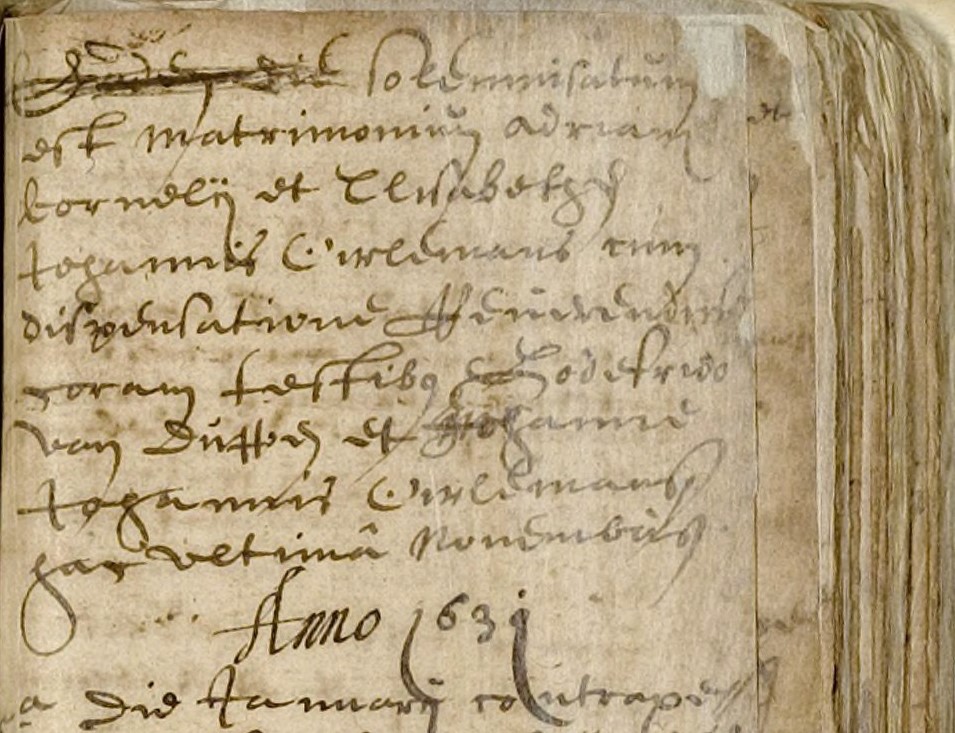 Eadem die solemnisatum
est matrimonium Adriani
Cornelij et Elisabethe
Johannis Ceirlemans cum
dispensatione Reverendissi
coram testibus Godefrido
van Duffen et Johanne
Johannis Ceirlemans
hac ultimâ Novembris
Anno 1631
a die Januarij contraxe